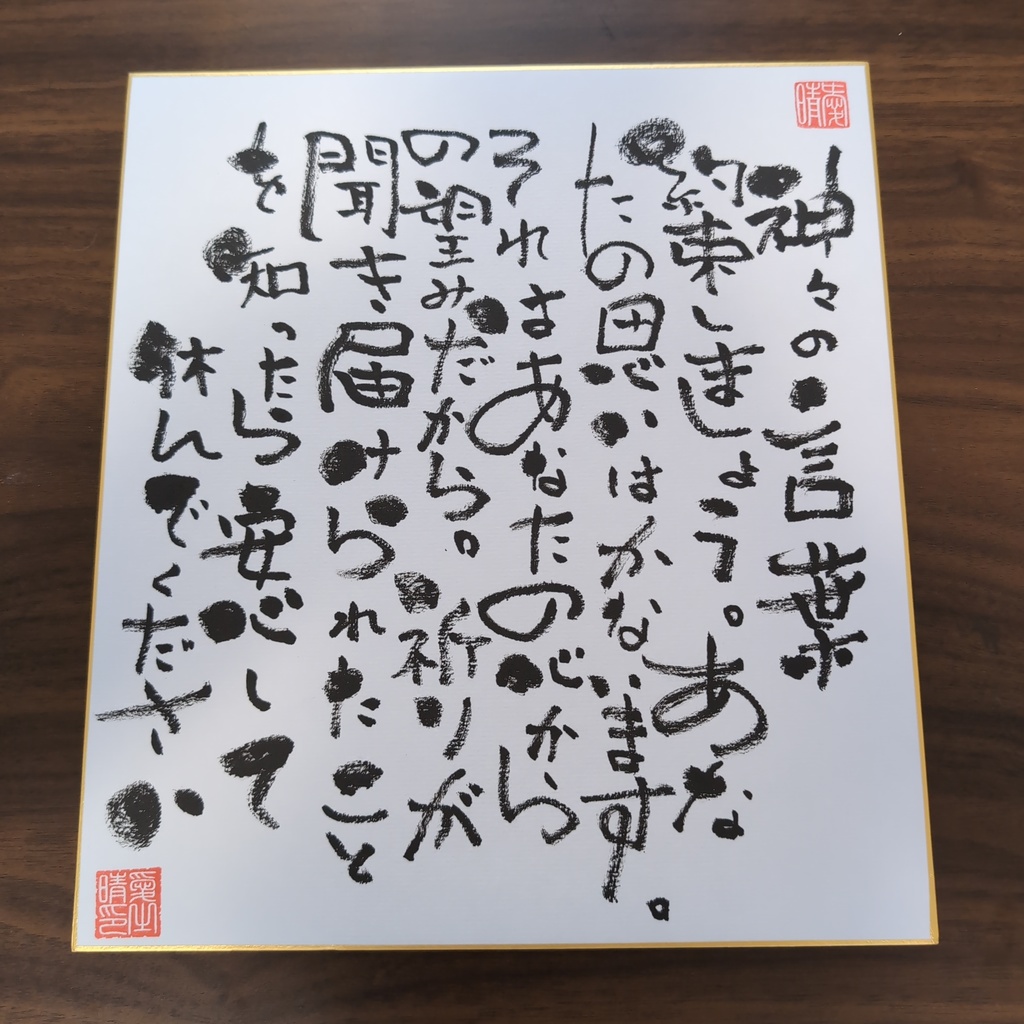 神々の言葉
約束しましょう。あな
たの思いはかないます。
それはあなたの心から
の望みだから。祈りが
聞き届けられたこと
を知ったら安心して
休んでください